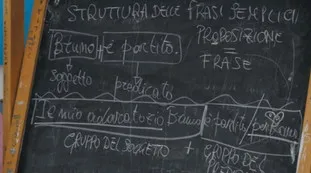 STRUTTURA DELLE FRASI SEMPLICI
Bruno è partito.
PROPOSIZIONE
=
FRASE
soggetto predicato
Il mio adorato zio Bruno è partito per Roma
GRUPPO DEL SOGGETTO + GRUPPO DEL